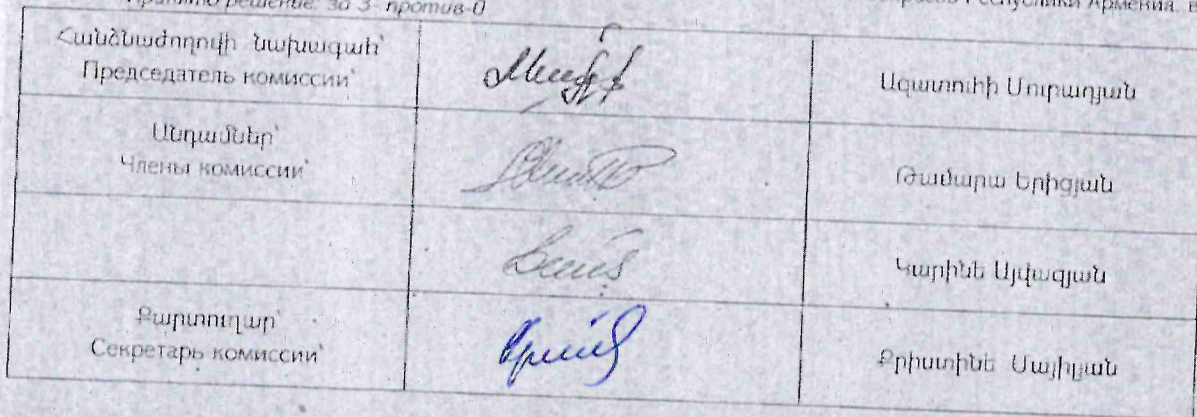 Принято решение: за 3- против-0
Республики Армения, в
Հանձնաժողովի նախագահ՝
Председатель комиссии՝
Ազատուհի Մուրադյան
Անդամներ՝
Члены комиссии՝
Թամարա Երիցյան
Կարինե Այվազյան
Քարտուղար՝
Секретарь комиссии՝
Քրիստինե Մայիլյան